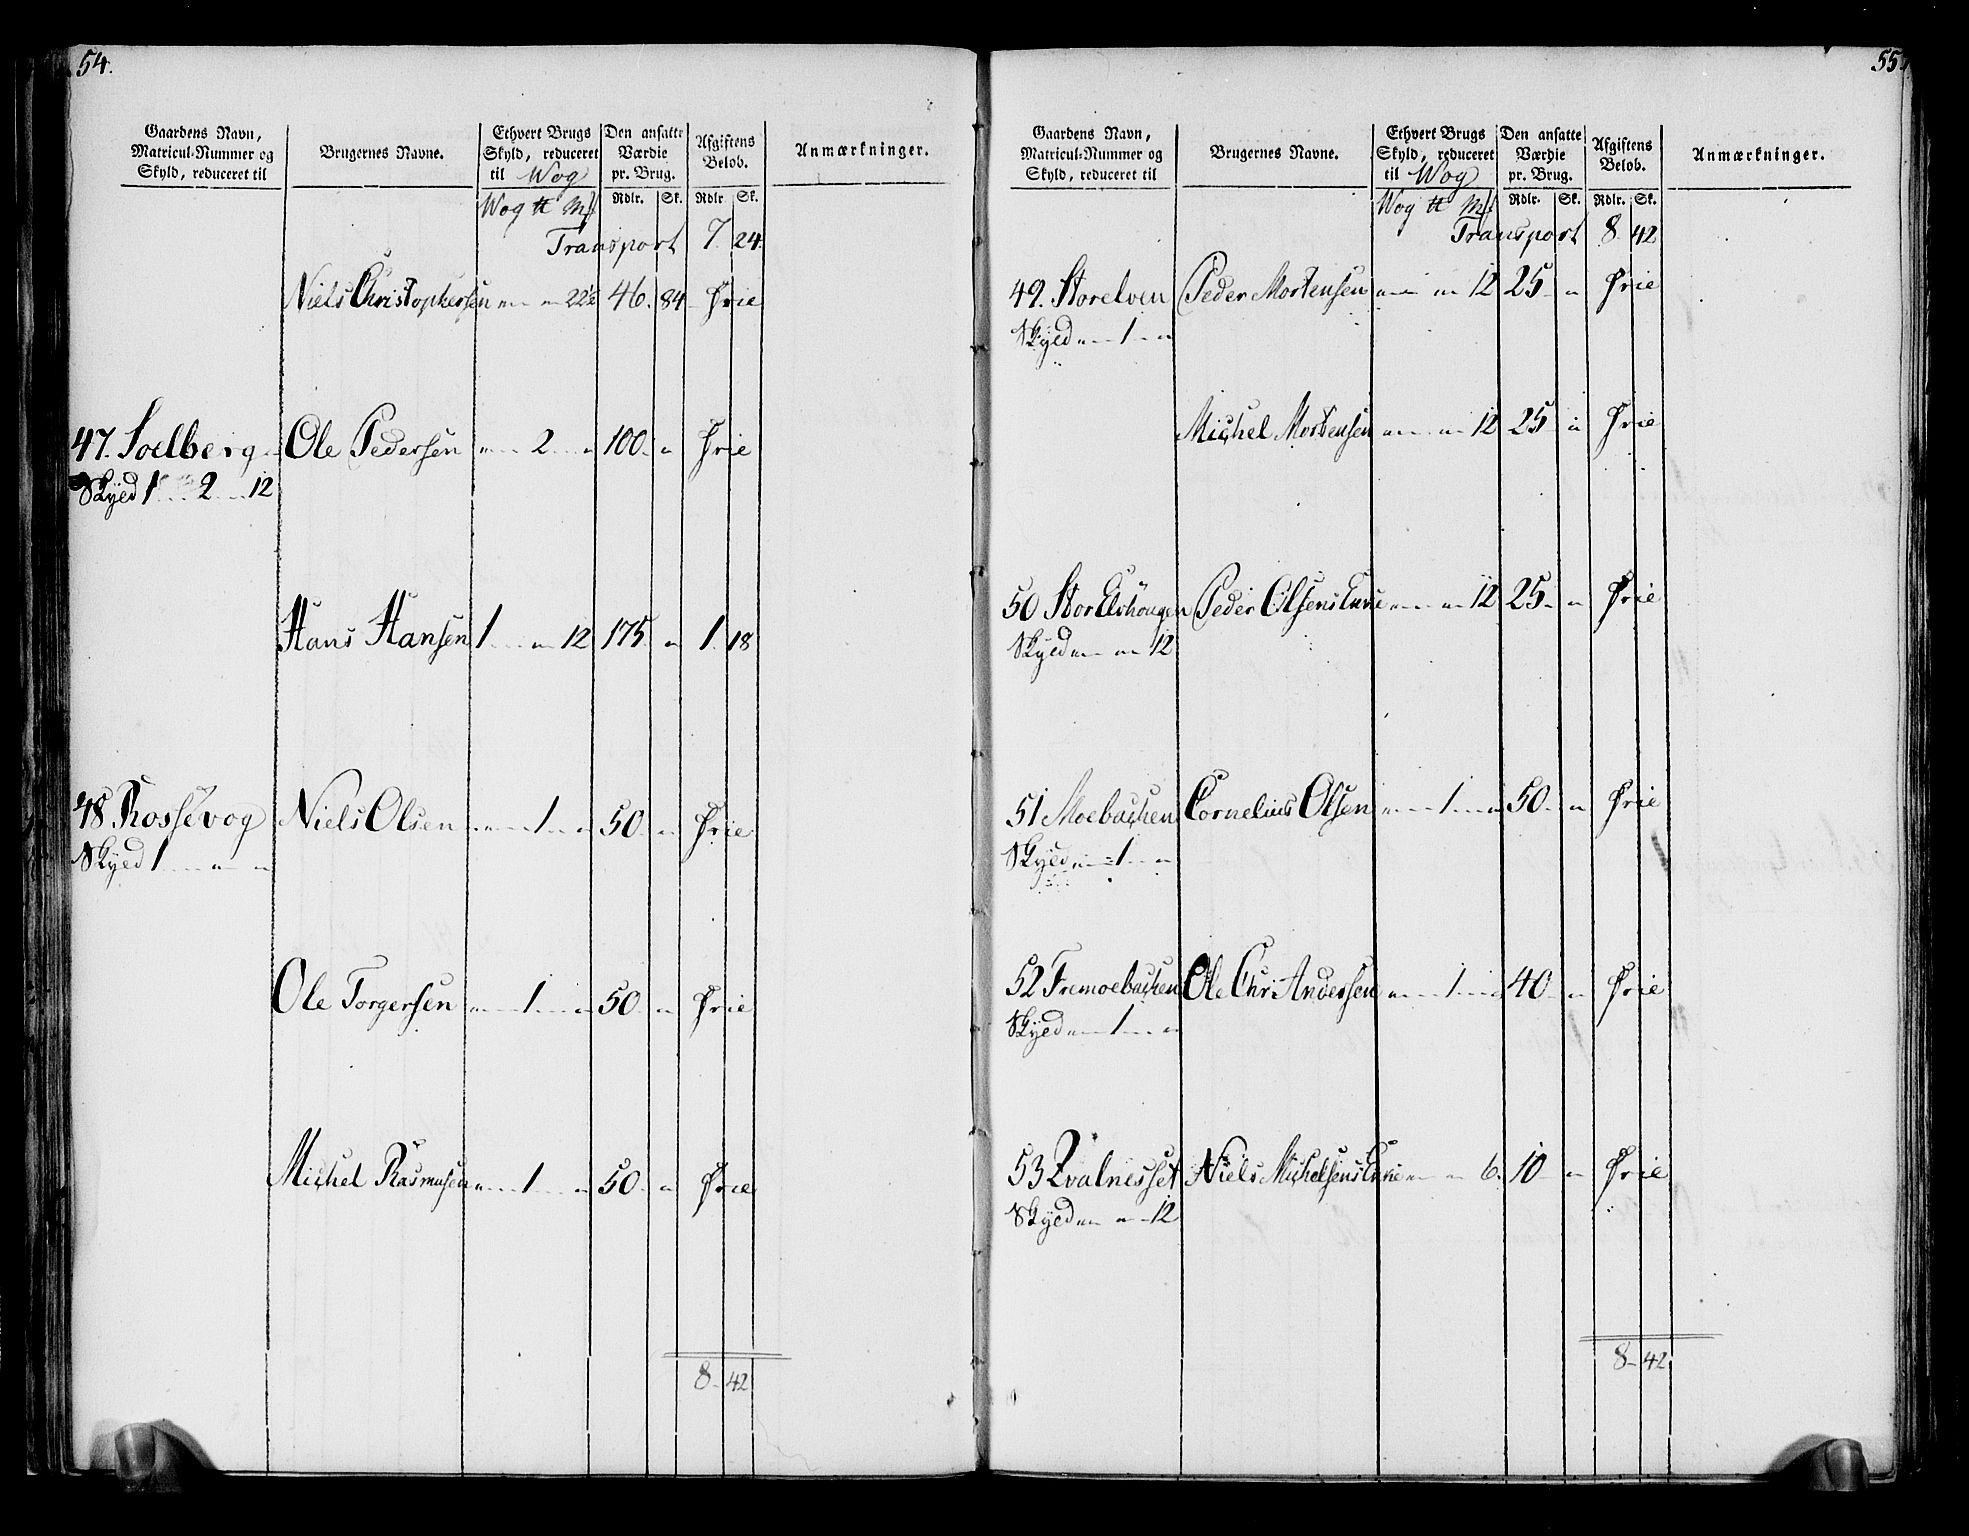 54.
Gaardens Navn,
Matricul-Nummer og
Skyld, reduceret til
Brugernes Navne.
Ethvert Brugs
Skyld, reduceret
til Wog
Den ansatte
Værdie
pr. Brug.
Afgiftens
Belob.
Anmærkninger.
Wog ℔ Mk
Rdlr. Sk. Rdlr. Sk.
Transport 7. 24.
Niels Christophersen " " 22½ 46. 84 Frie
47. Soelberg Ole Pedersen " 2 " 100 " Frie
Skyld 1 2 12
Hans Hansen 1 " 12 175 " 1. 18
48 Rossevog Niels Olsen " 1 " 50 " Frie
Skyld 1 " "
Ole Torgersen " 1 " 50 " Frie
Michel Rasmusen " 1 " 50 " Frie
8 42
55.
Gaardens Navn,
Matricul-Nummer og
Skyld, reduceret til
Brugernes Navne.
Ethvert Brugs
Skyld, reduceret
til Wog
Den ansatte
Værdie
pr. Brug.
Afgiftens
Belob.
Anmærkninger.
Wog ℔ Mk
Rdlr. Sk. Rdlr. Sk.
Transport 8 42
49. Storelven Peder Mortensen " " 12 25 " Frie
Skyld " 1 "
Michel Mortensen " " 12 25 " Frie
50 Storelshougen Peder Olsens Enke " " 12 25 " Frie
Skyld " " 12
51 Moebachen Cornelius Olsen " 1 " 50 " Frie
Skyld " 1 "
52 Fremoebachen Ole Chr: Andersen " 1 " 40 " Frie
Skyld " 1 "
53 Qvalnesset Niels Michelsens Enke " " 6. 10 " Frie
Skyld " " 12
8 42